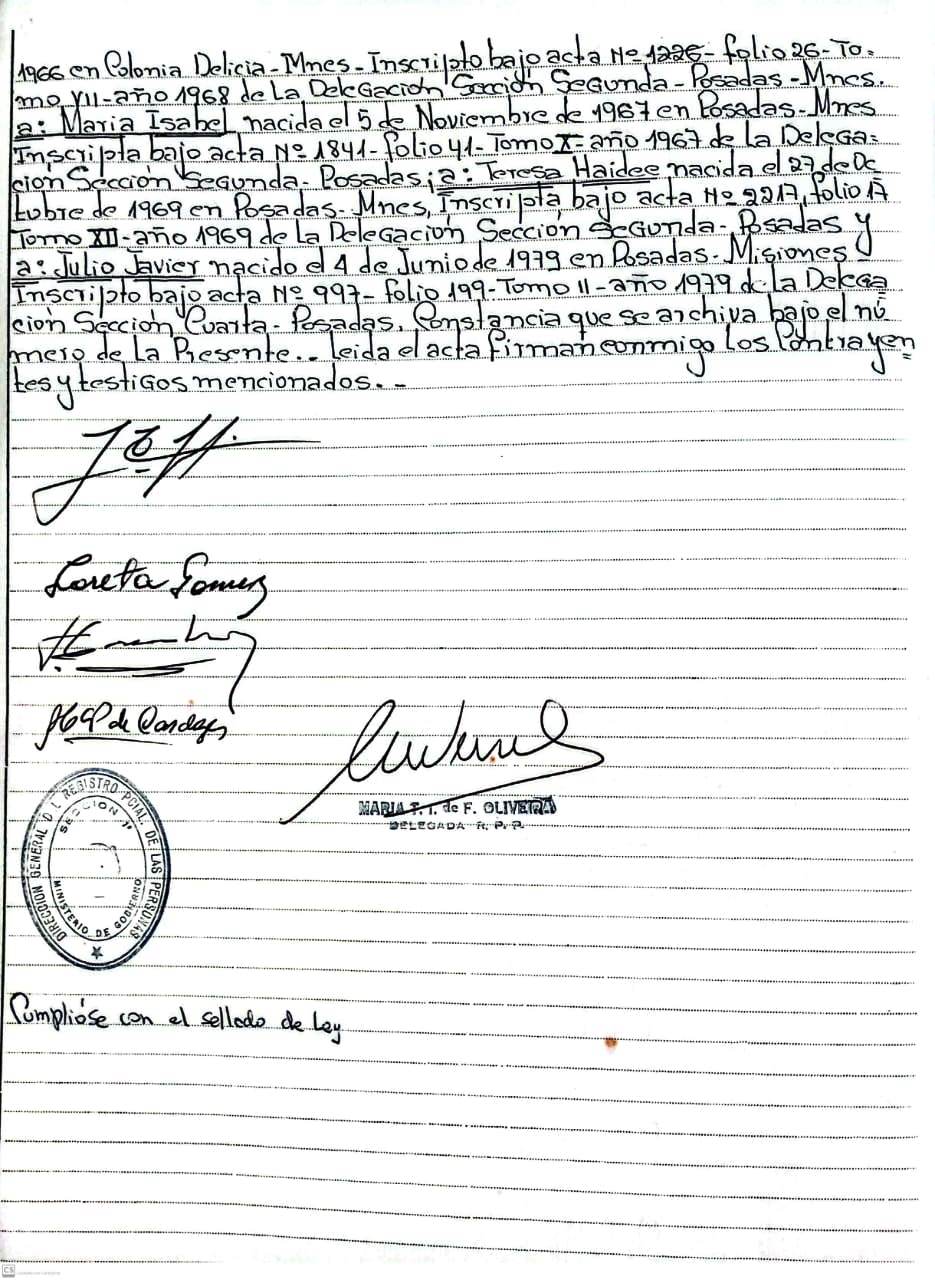 1966 en Colonia Delicia - Mnes - Inscripto bajo acta Nº 1226 - folio 26 - To=
mo VII - año 1968 de La Delegación Sección Segunda - Posadas - Mnes.
a: Maria Isabel nacida el 5 de Noviembre de 1967 en Posadas - Mnes
Inscripta bajo acta Nº 1841 - folio 41 - Tomo X - año 1967 de La Delega=
ción Sección Segunda - Posadas; a: Teresa Haidee nacida el 27 de Oc
tubre de 1969 en Posadas - Mnes, Inscripta bajo acta Nº 2217, folio 17
Tomo XII - año 1969 de La Delegación Sección Segunda - Posadas y
a: Julio Javier nacido el 4 de Junio de 1979 en Posadas - Misiones
Inscripto bajo acta Nº 997 - folio 199 - Tomo II - año 1979 de La Delega
ción Sección Cuarta - Posadas, Constancia que se archiva bajo el nú
mero de La Presente.. Leida el acta firman conmigo Los Contrayen=
tes y testigos mencionados. -
Loreta Gomez
MARIA T. I. de F. OLIVEIRA
DELEGADA R. P. P.
DIRECCION GENERAL D L REGISTRO PCIAL. DE LAS PERSONAS
SECCION 1ª
MINISTERIO DE GOBIERNO
Cumplióse con el sellado de Ley
CS